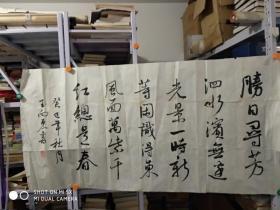 勝日尋芳
泗水濱無邊
光景一時新
等閑識得東
風面萬紫千
紅總是春
癸巳年秋月
MI DUAL CAMERA